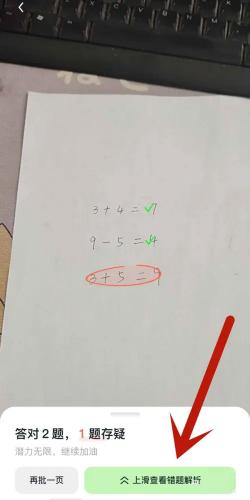 3+4=7
9-5=4
3+5=9
答对2题，1题存疑
潜力无限，继续加油
再批一页
上滑查看错题解析